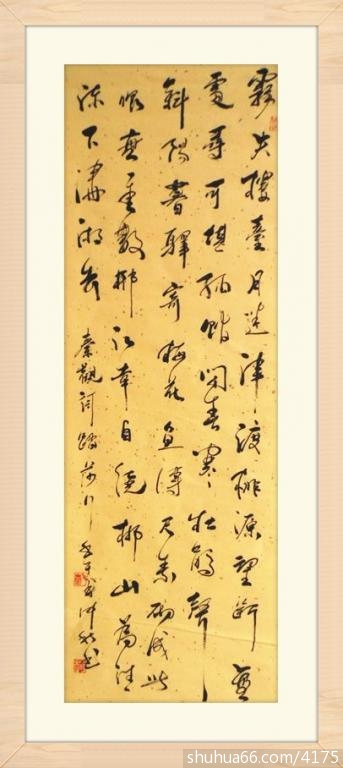 霧失樓臺月迷津渡桃源望斷無
處尋可堪孤館閉春寒杜鵑聲
斜陽暮驛寄梅花魚傳尺素砌成此
恨無重數郴江幸自繞郴山為誰
流下瀟湘去 秦觀詞踏莎行 書
shuhua66.com/4175